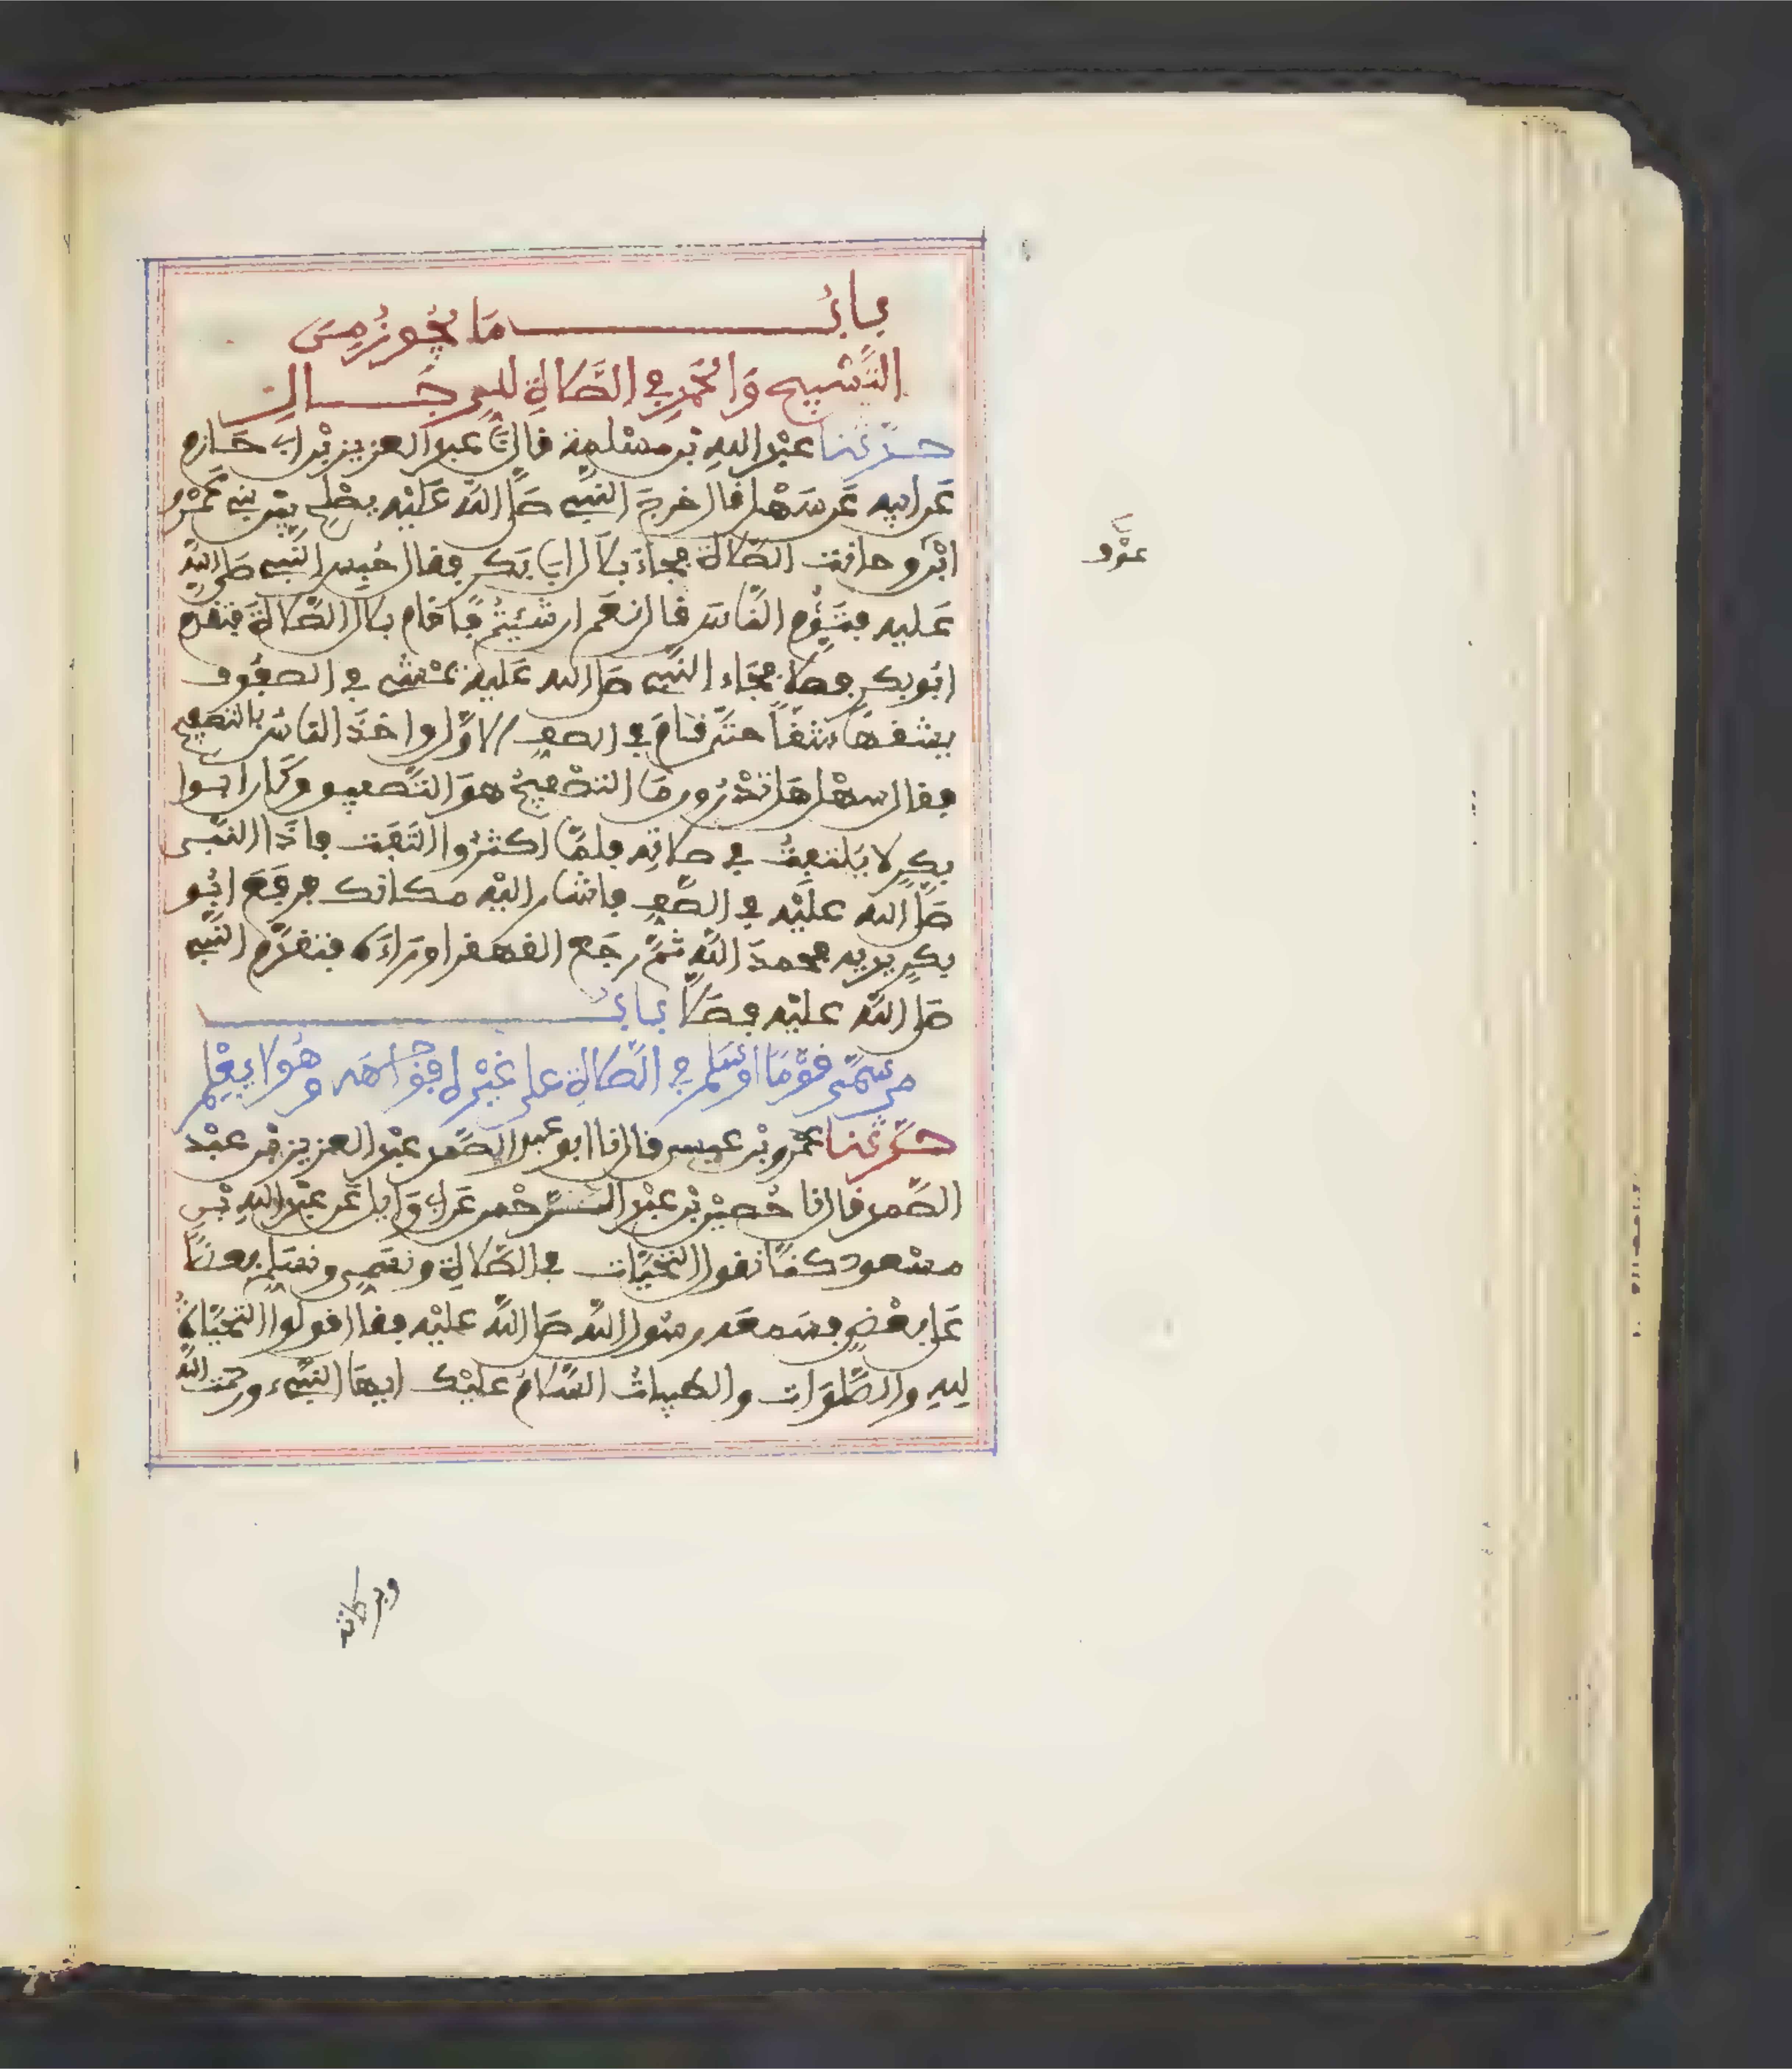 باب ما يجوز من
التسبيح والحمد في الصلاة للرجال
حدثنا عبد الله بن مسلمة قال نا عبد العزيز بن ابي حازم
عن ابيه عن سهل قال خرج النبي صلى الله عليه يصلح بين بني عمرو
ابن وحانت الصلاة فجاء بلال ابي بكر فقال حبس النبي صلى الله
عليه فتؤم الناس قال نعم ان شيتم فاقام بلال الصلاة فتقدم
ابو بكر فصلا فجاء النبي صلى الله عليه يمشي في الصفوف
يشقها شقا حتى قام في الصف الاول واخذ الناس بالتصفيح
فقال سهل هل تدرون ما التصفيح هو التصفيق وكان ابوا
بكر لا يلتفت في صلاته فلما اكثروا التفت فاذا النبي
صلى الله عليه في الصف فاشار اليه مكانك فرفع ابو
بكر يديه فحمد الله ثم رجع القهقرا وراءه فتقدم النبي
صلى الله عليه فصلا باب
من سمى قوما او سلم في الصلاة على غيره مواجهة وهو لا يعلم
حدثنا عمرو بن عيسى قال نا ابو عبد الصمد عبد العزيز بن عبد
الصمد قال نا حصين بن عبد الرحمن عن ابي وايل عن عبد الله بن
مسعود كنا نقول التحيات في الصلاة ونسمي ونسلم بعضنا
على بعض فسمعه رسول الله صلى الله عليه فقال قولوا التحيات
لله والصلوات والطيبات السلام عليك ايها النبيء ورحمت الله
وبركاته
عوف